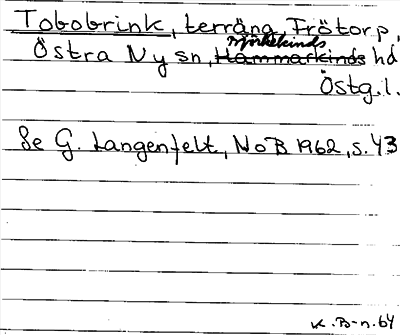 Tobobrink, terräng, Frötorp,
Björkekinds
Östra Ny sn, Hammarkinds hd
Östg.l.
Se G. Langenfelt, NoB 1962, s. 43
K. B-n. 64